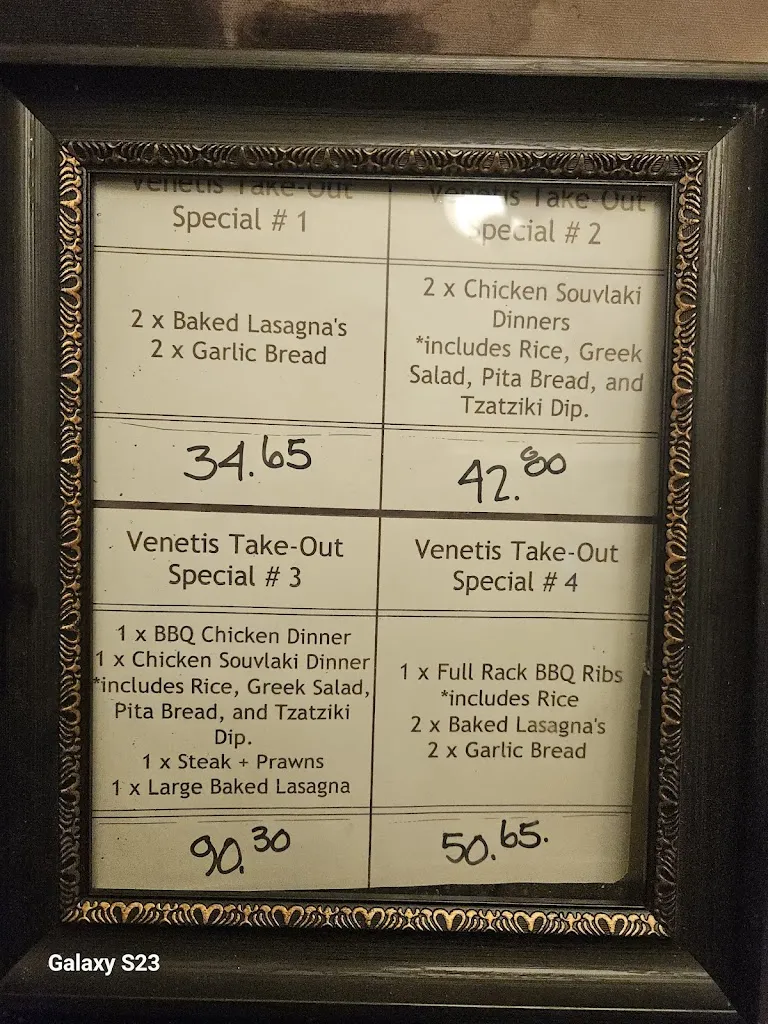 Venetis Take-Out
Special # 1
2 x Baked Lasagna's
2 x Garlic Bread
34.65
Venetis Take-Out
Special # 2
2 x Chicken Souvlaki
Dinners
*includes Rice, Greek
Salad, Pita Bread, and
Tzatziki Dip.
42.80
Venetis Take-Out
Special # 3
1 x BBQ Chicken Dinner
1 x Chicken Souvlaki Dinner
*includes Rice, Greek Salad,
Pita Bread, and Tzatziki
Dip.
1 x Steak + Prawns
1 x Large Baked Lasagna
90.30
Venetis Take-Out
Special # 4
1 x Full Rack BBQ Ribs
*includes Rice
2 x Baked Lasagna's
2 x Garlic Bread
50.65.
Galaxy S23